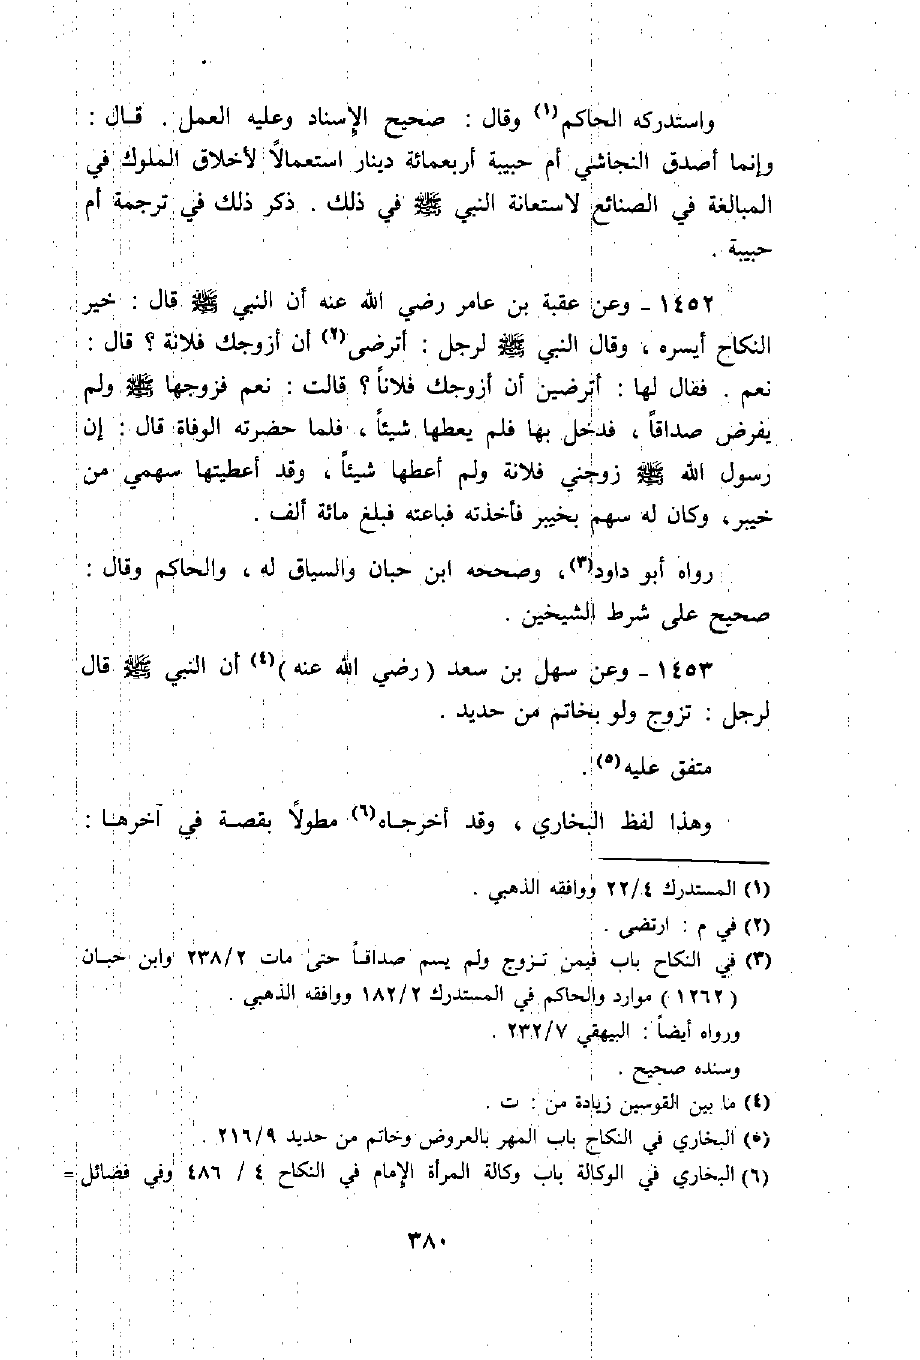 واستدركه الحاكم(١) وقال : صحيح الإسناد وعليه العمل . قال :
وإنما أصدق النجاشي أم حبيبة أربعمائة دينار استعمالاً لأخلاق الملوك في
المبالغة في الصنائع لاستعانة النبي ﷺ في ذلك . ذكر ذلك في ترجمة أم
حبيبة .
١٤٥٢ ـ وعن عقبة بن عامر رضي الله عنه أن النبي ﷺ قال : خير
النكاح أيسره ، وقال النبي ﷺ لرجل : أترضى(٢) أن أزوجك فلانة ؟ قال :
نعم . فقال لها : أترضين أن أزوجك فلاناً ؟ قالت : نعم فزوجها ﷺ ولم
يفرض صداقاً ، فدخل بها فلم يعطها شيئاً ، فلما حضرته الوفاة قال : إن
رسول الله ﷺ زوجني فلانة ولم أعطها شيئاً ، وقد أعطيتها سهمي من
خيبر، وكان له سهم بخيبر فأخذته فباعته فبلغ مائة ألف .
رواه أبو داود(٣)، وصححه ابن حبان والسياق له ، والحاكم وقال :
صحيح على شرط الشيخين .
١٤٥٣ ـ وعن سهل بن سعد ( رضي الله عنه )(٤) أن النبي ﷺ قال
لرجل : تزوج ولو بخاتم من حديد .
متفق عليه(٥).
وهذا لفظ البخاري ، وقد أخرجاه(٦) مطولاً بقصة في آخرها :
(١) المستدرك ٢٢/٤ ووافقه الذهبي .
(٢) في م : ارتضى .
(٣) في النكاح باب فيمن تزوج ولم يسم صداقاً حتى مات ٢٣٨/٢ وابن حبان
( ١٢٦٢ ) موارد والحاكم في المستدرك ١٨٢/٢ ووافقه الذهبي .
ورواه أيضاً : البيهقي ٢٣٢/٧ .
وسنده صحيح .
(٤) ما بين القوسين زيادة من : ت .
(٥) البخاري في النكاح باب المهر بالعروض وخاتم من حديد ٢١٦/٩ .
(٦) البخاري في الوكالة باب وكالة المرأة الإمام في النكاح ٤ / ٤٨٦ وفي فضائل =
٣٨٠